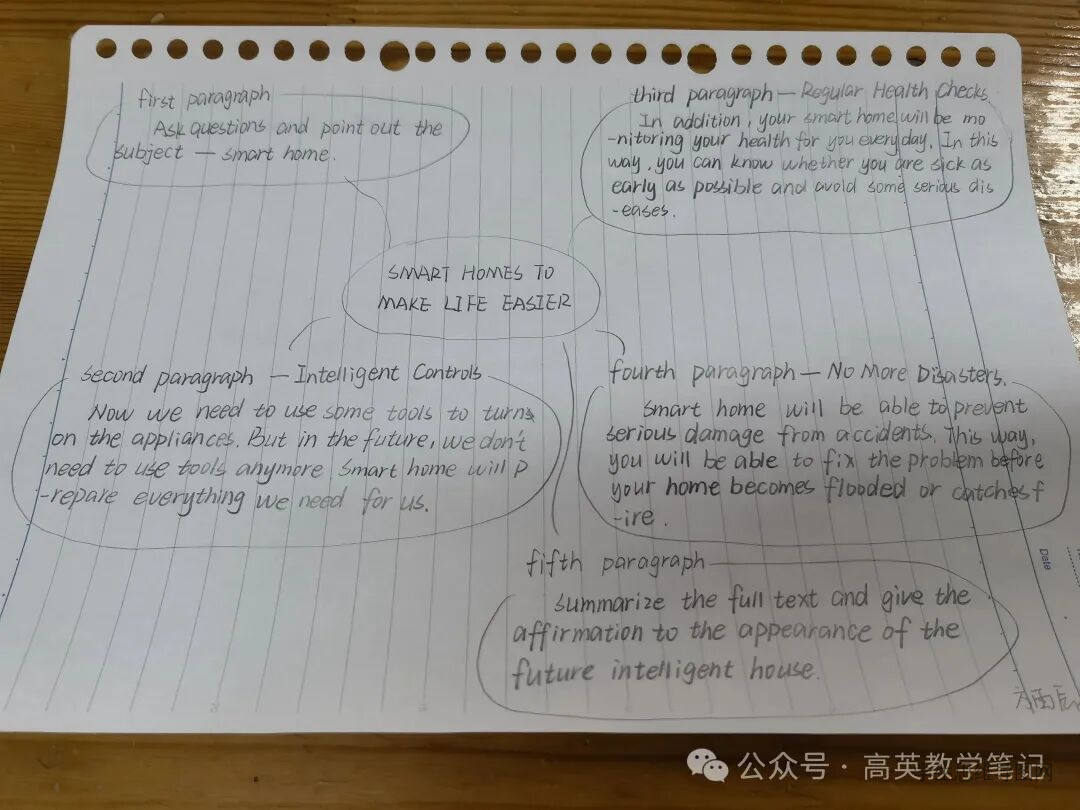 first paragraph
Ask questions and point out the
subject — smart home.
third paragraph — Regular Health Checks
In addition, your smart home will be mo
-nitoring your health for you everyday. In this
way, you can know whether you are sick as
early as possible and avoid some serious dis
-eases.
SMART HOMES TO
MAKE LIFE EASIER
second paragraph — Intelligent Controls
Now we need to use some tools to turn
on the appliances. But in the future, we don't
need to use tools anymore smart home will p
-repare everything we need for us.
fourth paragraph — No More Disasters.
Smart home will be able to prevent
serious damage from accidents. This way,
you will be able to fix the problem before
your home becomes flooded or catches f
-ire.
fifth paragraph
summarize the full text and give the
affirmation to the appearance of the
future intelligent house.
Date
公众号·高英教学笔记